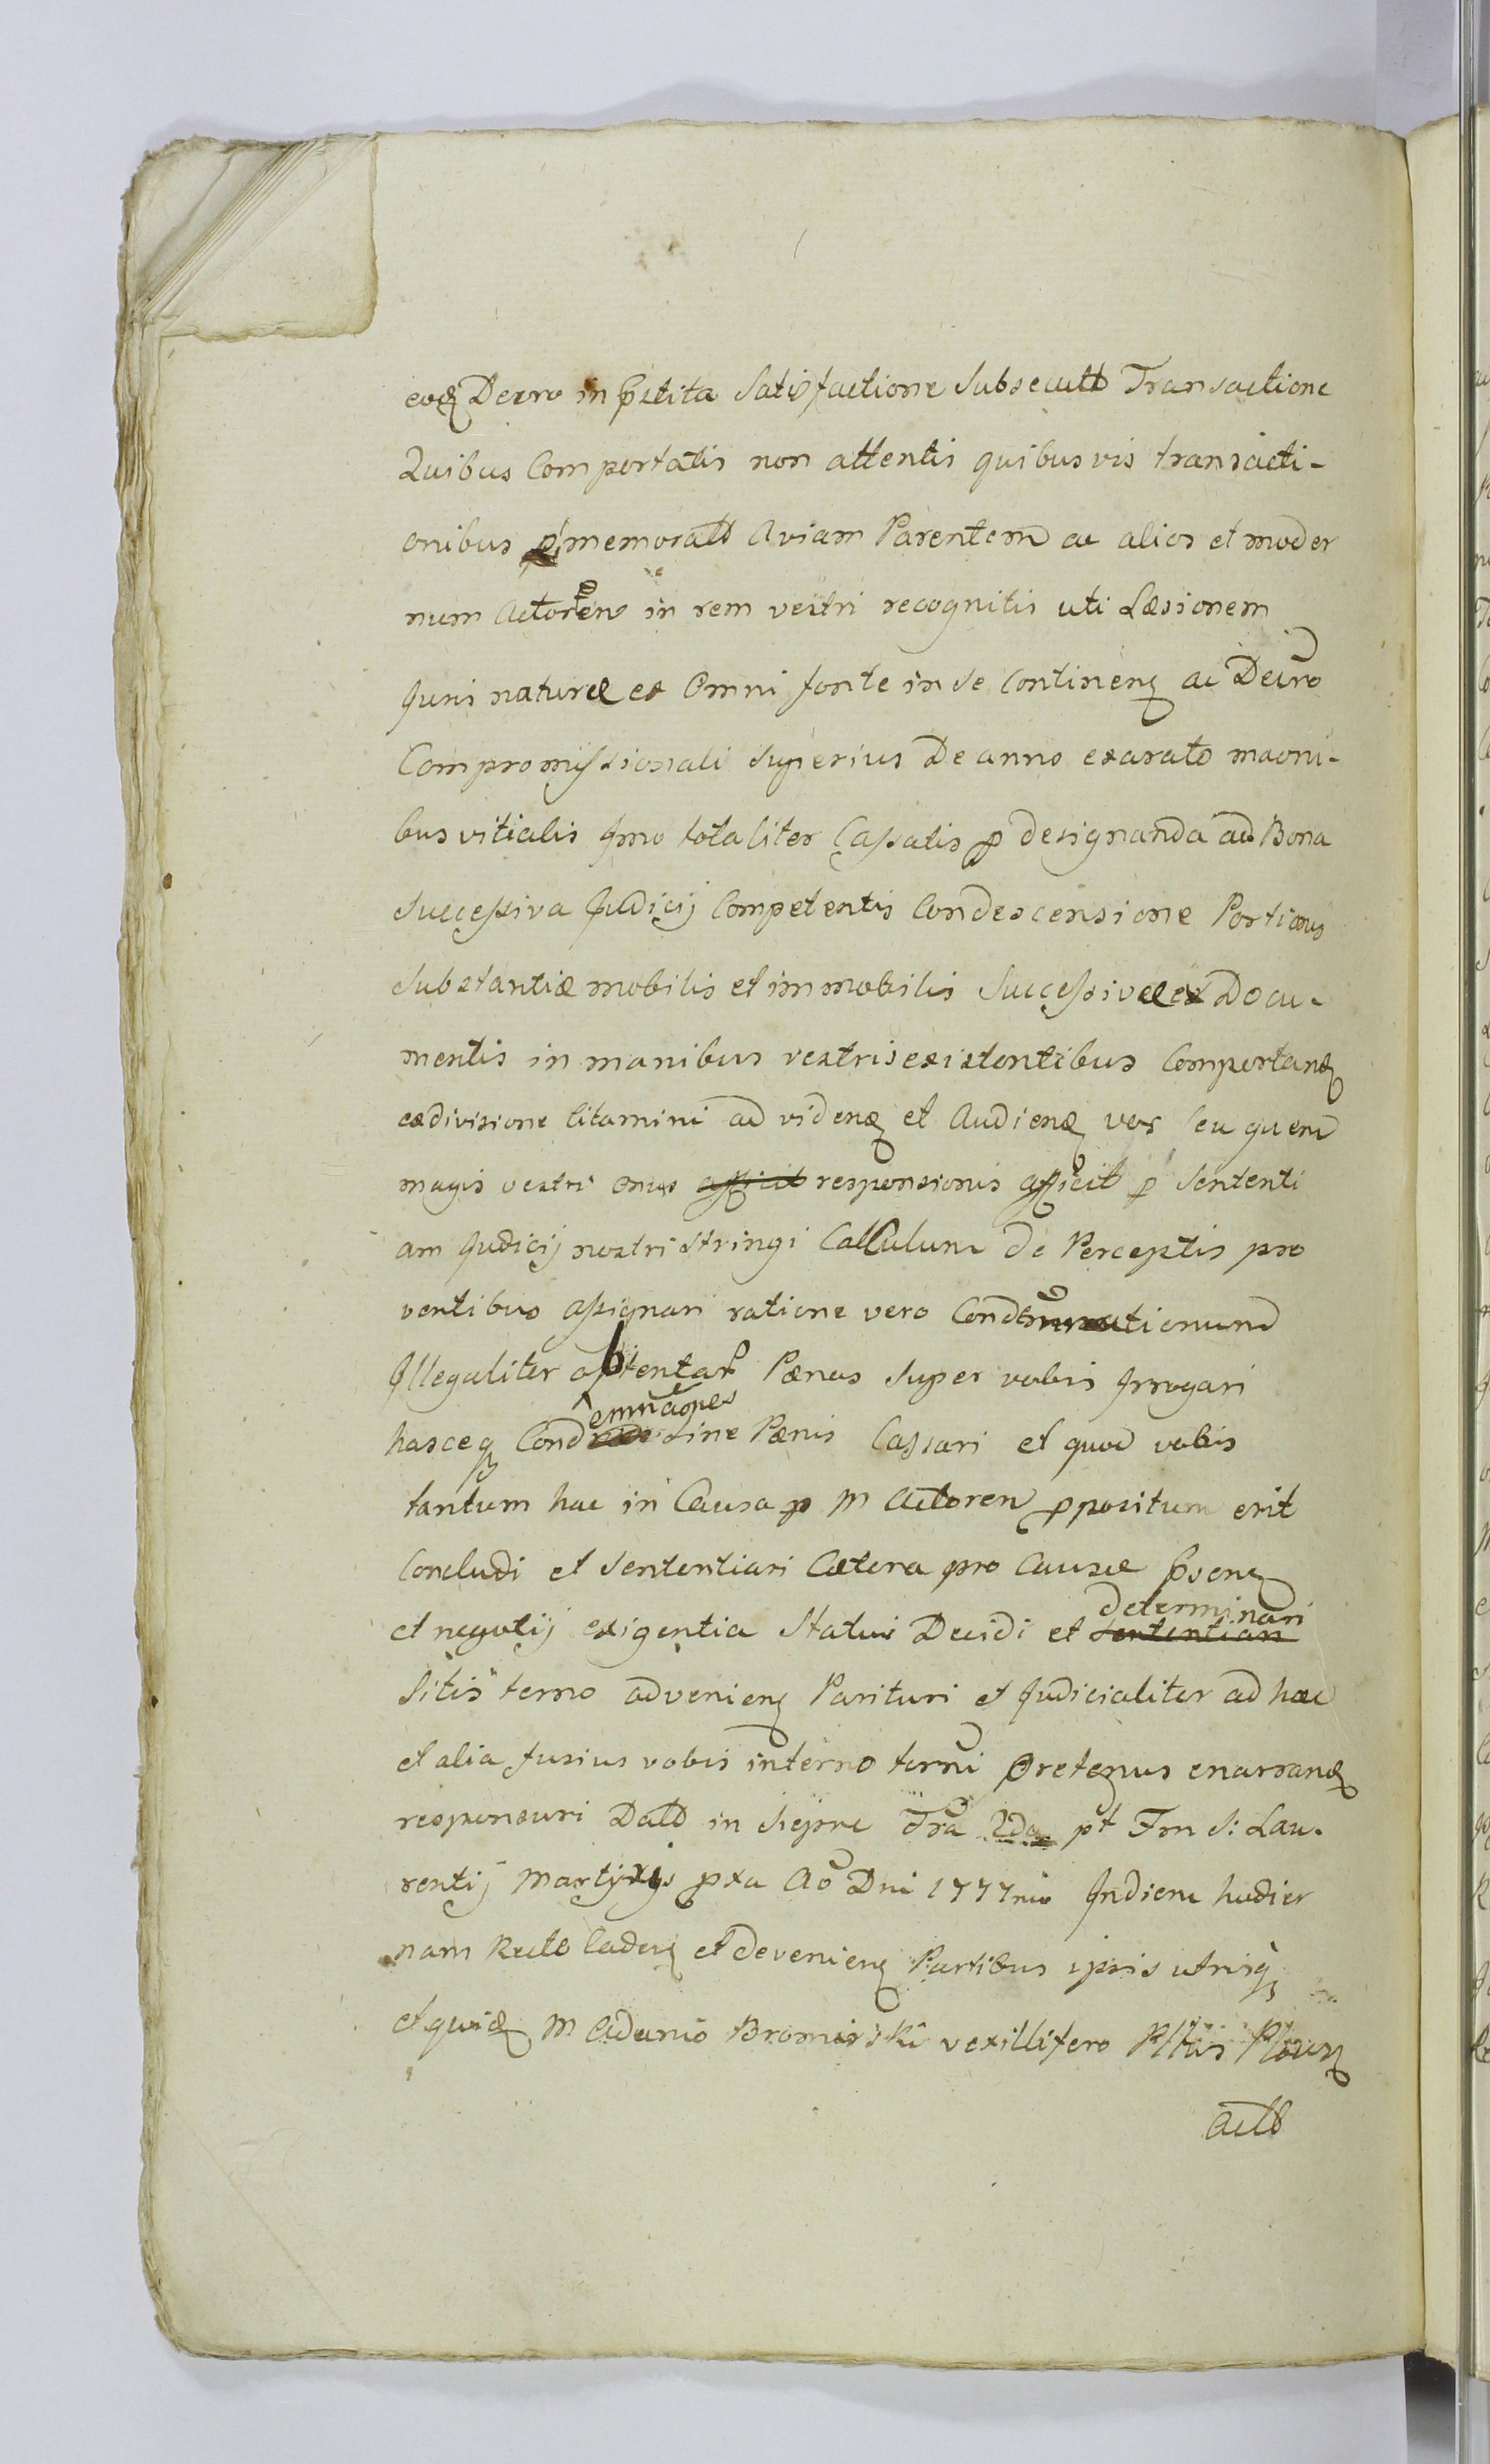 eoq Decro in pstita Satisfactione Subsecutt Transactione
Quibus Comportatis non attentis quibus vis transacti-
onibus p memoratt Aviam Parentem ac alios et moder
num Actorem in rem vestri recognitis uti Læsionem
Juri naturæ ex Omni fonte in se continenq ac Decro
Compromissionali Superius De anno exarato
bus vitialis Imo totaliter Cassatis p designanda ad Bona
Successiva Judicij Competentis Condescensione Portionis
Substantiæ mobilis et immobilis Successivæ ex Docu-
mentis in manibus vestris existentibus Comportanq
ex divisione Citamini ad videnq et Audienq vos seu quem
magis vestri onus afficit responsionis afficit p Sententi
am Judicij nostri stringi Calculum de Perceptis pro
ventibus assignari ratione vero Condemnationum
Illegaliter obtentar Pœnas super vobis Irrogari
hasceq Condemnaones sine Pœnis Cassari et quod vobis
tantum hac in Causa p M Actorem ppositum erit
Concludi et Sententiari Cætera pro Causæ psenq
et negotij exigentia Statui Decidi et sententiari determinari
Sitis terno advenienq Parituri et Judicialiter ad hæc
et alia fusius vobis in terno terni Oretenus enarranq
responsuri Datt in Siepre Fra 2da pt Fm S: Lau-
rentij Martyris pxa Ao Dni 1777mo In diem hodier
nam Recte Cadenq et devenienq Partibus ipsis utrisq
et quidq M Adamo Bromirski vexillifero Plttus Plocen
Actt